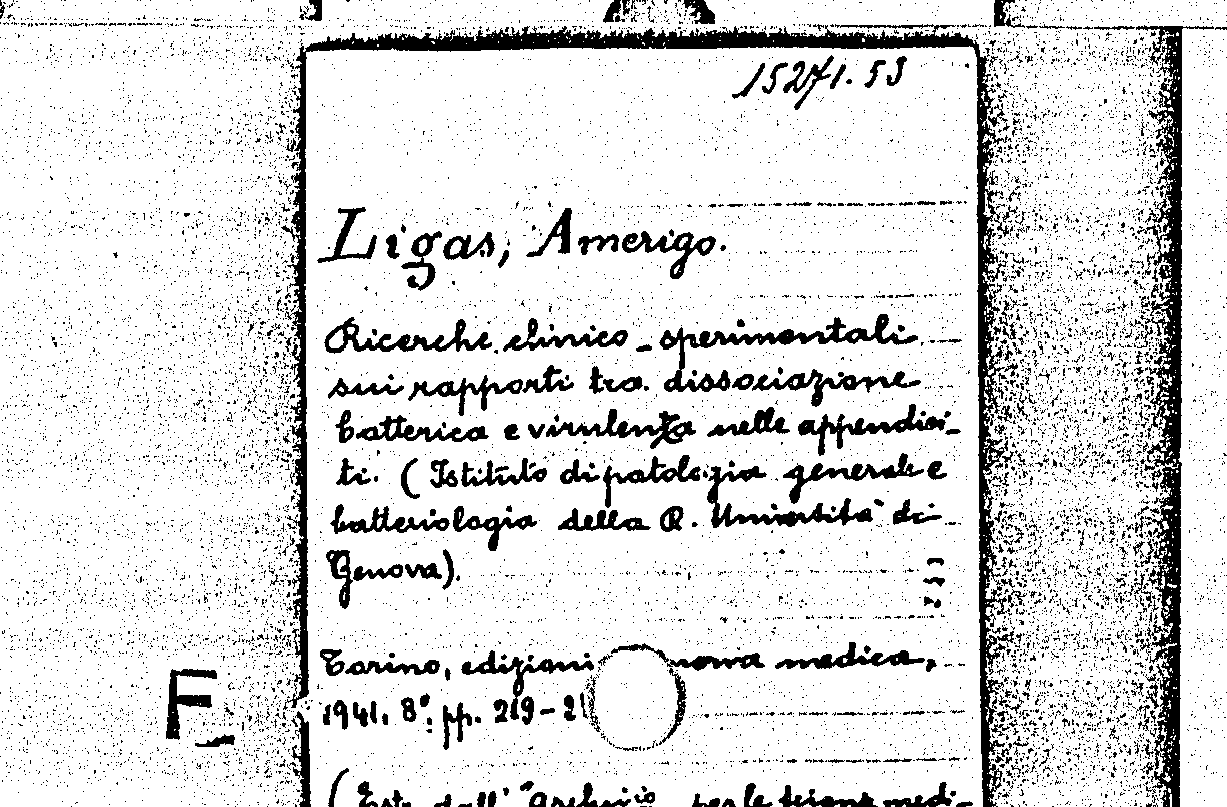 15271.53
Ligas, Amerigo.
Ricerche clinico-sperimentali
sui rapporti tra dissociazione
batterica e virulenza nelle appendici-
ti. (Istituto di patologia generale e
batteriologia della R. Università di
Genova).
Torino, edizioni medica,
1941. 8°. pp. 219-2
(Estr. dall' "Archivio per le scienze medi-
F